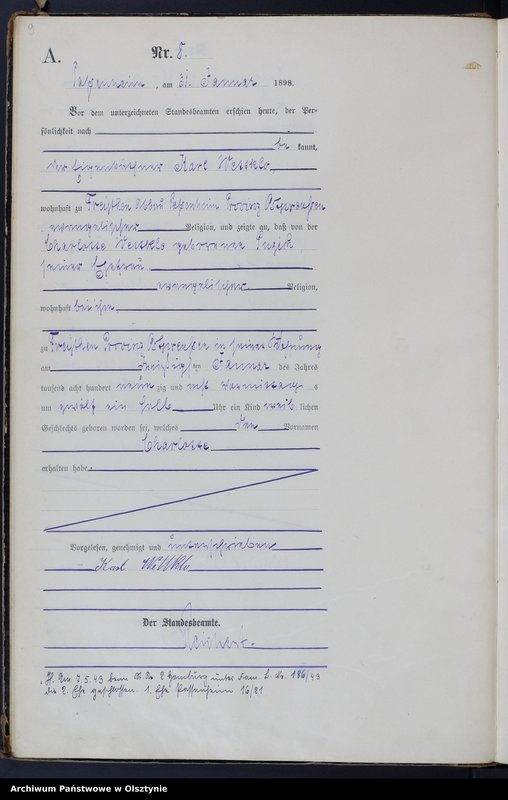 9
A.
Nr. 8.
Passenheim, am 31. Januar 1898.
Vor dem unterzeichneten Standesbeamten erschien heute, der Per-
sönlichkeit nach
be kannt,
der Eigenkäthner Karl
wohnhaft zu Abbau Passenheim Provinz Ostpreußen
evangelischer Religion, und zeigte an, daß von der
Charlotte geborenen
seiner Ehefrau
evangelischer Religion,
wohnhaft bei ihm
zu Provinz Ostpreußen in seiner Wohnung
am dreißigsten Januar des Jahres
tausend acht hundert neun zig und acht Vormittag s
um zwölf ein halb Uhr ein Kind weib lichen
Geschlechts geboren worden sei, welches den Vornamen
Charlotte
erhalten habe.
Vorgelesen, genehmigt und unterschrieben
Karl
Der Standesbeamte.
7.5.43 beim 2 Hamburg unter Nr. 186/43
die 2. Ehe geschlossen. 1. Ehe Passenheim 16/21
Archiwum Państwowe w Olsztynie